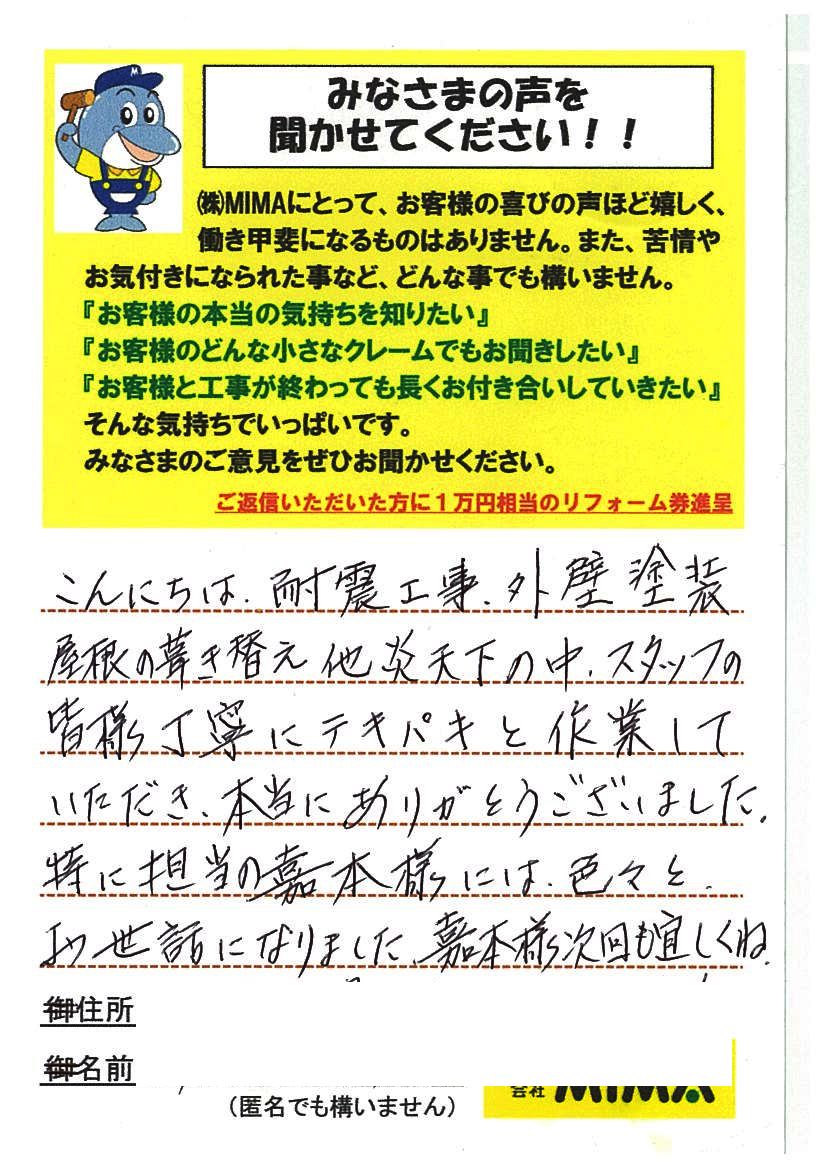 M
みなさまの声を
聞かせてください！！
㈱MIMAにとって、お客様の喜びの声ほど嬉しく、
働き甲斐になるものはありません。また、苦情や
お気付きになられた事など、どんな事でも構いません。
『お客様の本当の気持ちを知りたい』
『お客様のどんな小さなクレームでもお聞きしたい』
『お客様と工事が終わっても長くお付き合いしていきたい』
そんな気持ちでいっぱいです。
みなさまのご意見をぜひお聞かせください。
ご返信いただいた方に１万円相当のリフォーム券進呈
こんにちは、耐震工事、外壁塗装
屋根の葺き替え他炎天下の中、スタッフの
皆様丁寧にテキパキと作業して
いただき、本当にありがとうございました。
特に担当の嘉本様には、色々と、
お世話になりました、嘉本様次回も宜しくね。
御住所
御名前
（匿名でも構いません）
会社 MIMA